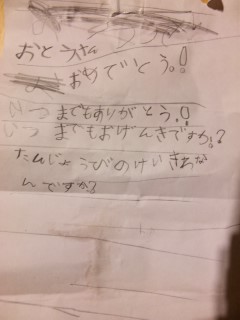 おとうさん
おめでとう。!
いつまでもありがとう。!
いつまでもおげんきですか?
たんじょうびのけいきはな
んですか?